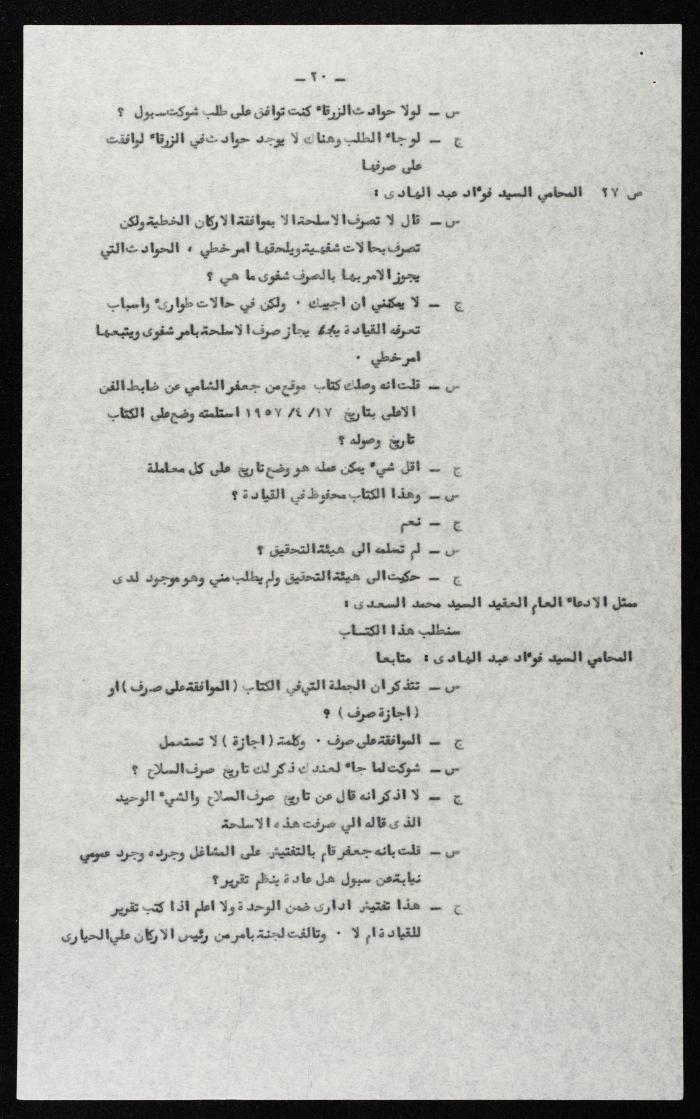 - ٢٠ -
س - لولا حوادث الزرقاء كنت توافق على طلب شوكت سبول ؟
ج - لو جاء الطلب وهناك لا يوجد حوادث في الزرقاء لوافقت
على صرفها
ص ٢٧ المحامي السيد فوءاد عبد الهادى :
س - قال لا تصرف الاسلحة الا بموافقة الاركان الخطية ولكن
تصرف بحالات شفهية ويلحقها امر خطي ، الحوادث التي
يجوز الامر بها بالصرف شفوى ما هي ؟
ج - لا يمكنني ان اجيبك . ولكن في حالات طوارىء واسباب
تعرفه القيادة يجاز صرف الاسلحة بامر شفوى ويتبعها
امر خطي .
س - قلت انه وصلك كتاب موقع من جعفر الشامي عن ضابط الفن
الاعلى بتاريخ ١٧/ ٤/ ١٩٥٧ استلمته وضع على الكتاب
تاريخ وصوله ؟
ج - اقل شيء يمكن عمله هو وضع تاريخ على كل معاملة
س - وهذا الكتاب محفوظ في القيادة ؟
ج - نعم
س - لم تسلمه الى هيئة التحقيق ؟
ج - حكيت الى هيئة التحقيق ولم يطلب مني وهو موجود لدى
ممثل الادعاء العام العقيد السيد محمد السعدى :
سنطلب هذا الكتاب
المحامي السيد فوءاد عبد الهادى : متابعا
س - تتذكر ان الجملة التي في الكتاب ( الموافقة على صرف ) او
( اجازة صرف ) ؟
ج - الموافقة على صرف . وكلمة ( اجازة ) لا تستعمل
س - شوكت لما جاء لعندك ذكر لك تاريخ صرف السلاح ؟
ج - لا اذكر انه قال عن تاريخ صرف السلاح والشيء الوحيد
الذى قاله الي صرفت هذه الاسلحة
س - قلت بانه جعفر قام بالتفتيش على المشاغل وجرده وجرد عمومي
نيابة عن سبول هل عادة ينظم تقرير ؟
ج - هذا تفتيش ادارى ضمن الوحدة ولا اعلم اذا كتب تقرير
للقيادة ام لا . وتالفت لجنة بامر من رئيس الاركان علي الحيارى